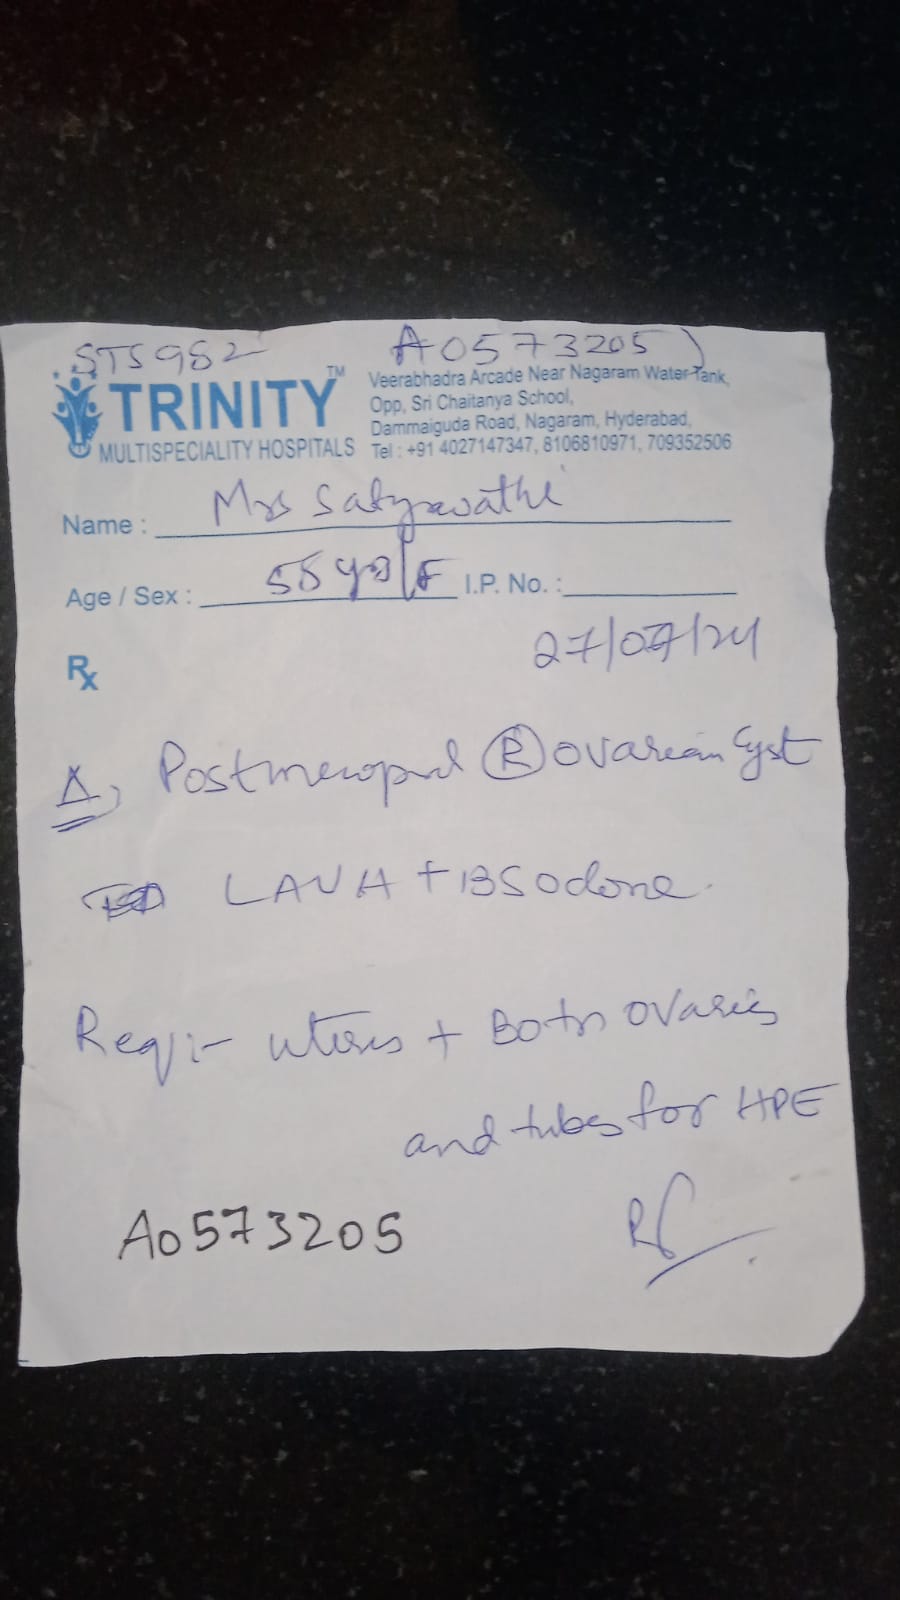 STS982 A0573205)
TRINITY TM
MULTISPECIALITY HOSPITALS
Veerabhadra Arcade Near Nagaram Water-Tank,
Opp, Sri Chaitanya School,
Dammaiguda Road, Nagaram, Hyderabad,
Tel : +91 4027147347, 8106810971, 709352506
Name : Mrs Satyavathi
Age / Sex : 55 yrs/F I.P. No. :
Rx 27/07/24
Δ, Postmenopal (R) ovarian Cyst
LAVH + BSO done.
Req:- uterus + Both ovaries
and tubes for HPE
A0573205